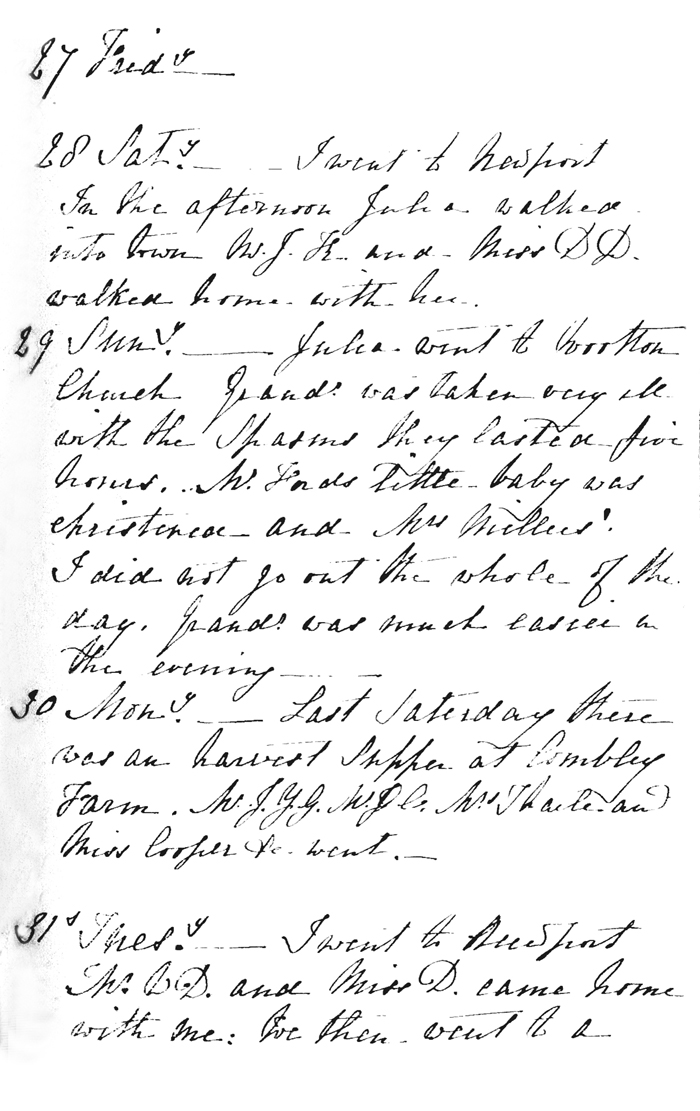 27 Frid.y
28 Sat.y I went to Newport
In the afternoon Julia walked
into town W. J. K. and Miss D D.
walked home with her.
29 Sun.y Julia went to Wootton
Church Grand.a was taken very ill
with the Spasms they lasted five
hours. Mr. Fords little baby was
christened and Mrs Millers'.
I did not go out the whole of the
day. Grand.a was much easier in
the evening
30 Mon.y Last Saturday there
was an harvest Supper at Combley
Farm. Mr. J. Y. G. Mrs and
Miss Cooper &c went.
31s Tues.y I went to Newport
Mr. D. and Miss D. came home
with me: We then went to a